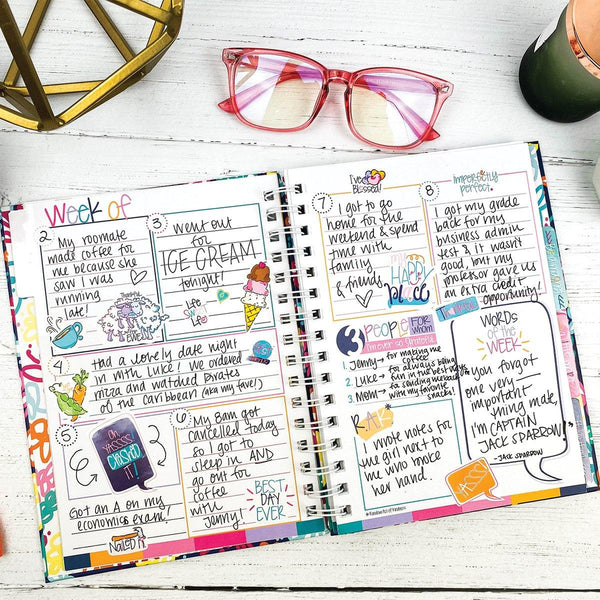 Week of
2
My roomate
made coffee for
me because she
saw I was
running
late
3
Went out
for
ICE CREAM
tonight!
Life
4
Had a lovely date night
in with Luke! We ordered
pizza and watched Pirates
of the Caribbean (aka my fave!)
5
oh
YASSSS!
CRUSHED
IT!
Got an A on my
economics exam!
Nailed it
6
My 8am got
cancelled today
so I got to
sleep in AND
go out for
coffee
with
Jenny!
BEST
DAY
EVER
Tweet
Blessed!
7
I got to go
home for the
weekend & spend
time with
family
& friends
my
HAPPY
place
imperfectly
perfect.
8
I got my grade
back for my
business admin
test & it wasn't
good, but my
professor gave us
an extra credit
opportunity!
3 PEOPLE FOR whom
I'm ever so grateful
1. Jenny - for making me
2. Luke - for always being
3. Mom - for sending me back
with my favorite
snacks!
RAK
I wrote notes for
the girl next to
me who broke
her hand.
WORDS
of the
WEEK
"You forgot
one very
important
thing mate,
I'm CAPTAIN
JACK SPARROW."
- JACK SPARROW
YASSS!